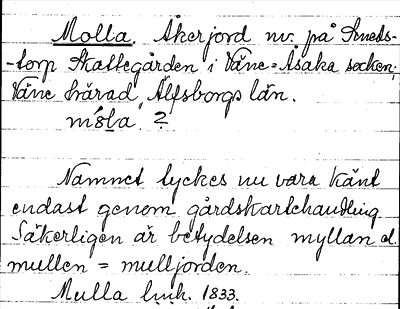 Molla. Åkerjord nv. på Smeds-
-torp Skattegården i Väne=Åsaka socken,
Väne härad, Älfsborgs län.
mола ?
Namnet lyckes nu vara känt
endast genom gårdskartehandling.
Säkerligen är betydelsen myllan el.
mullen = mulljorden.
Mulla 1833.